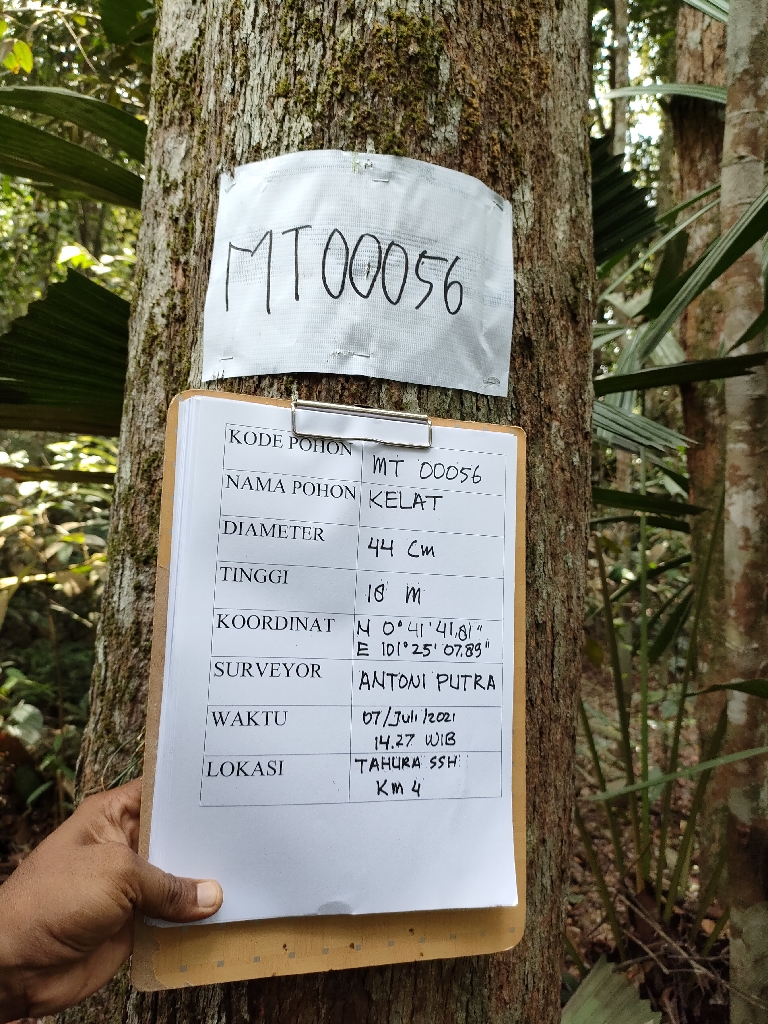 MT00056
KODE POHON MT 00056
NAMA POHON KELAT
DIAMETER 44 Cm
TINGGI 18 M
KOORDINAT N 0°41'41.81"
E 101°25'07.89"
SURVEYOR ANTONI PUTRA
WAKTU 07/Juli/2021
14.27 WIB
LOKASI TAHURA SSH
KM 4